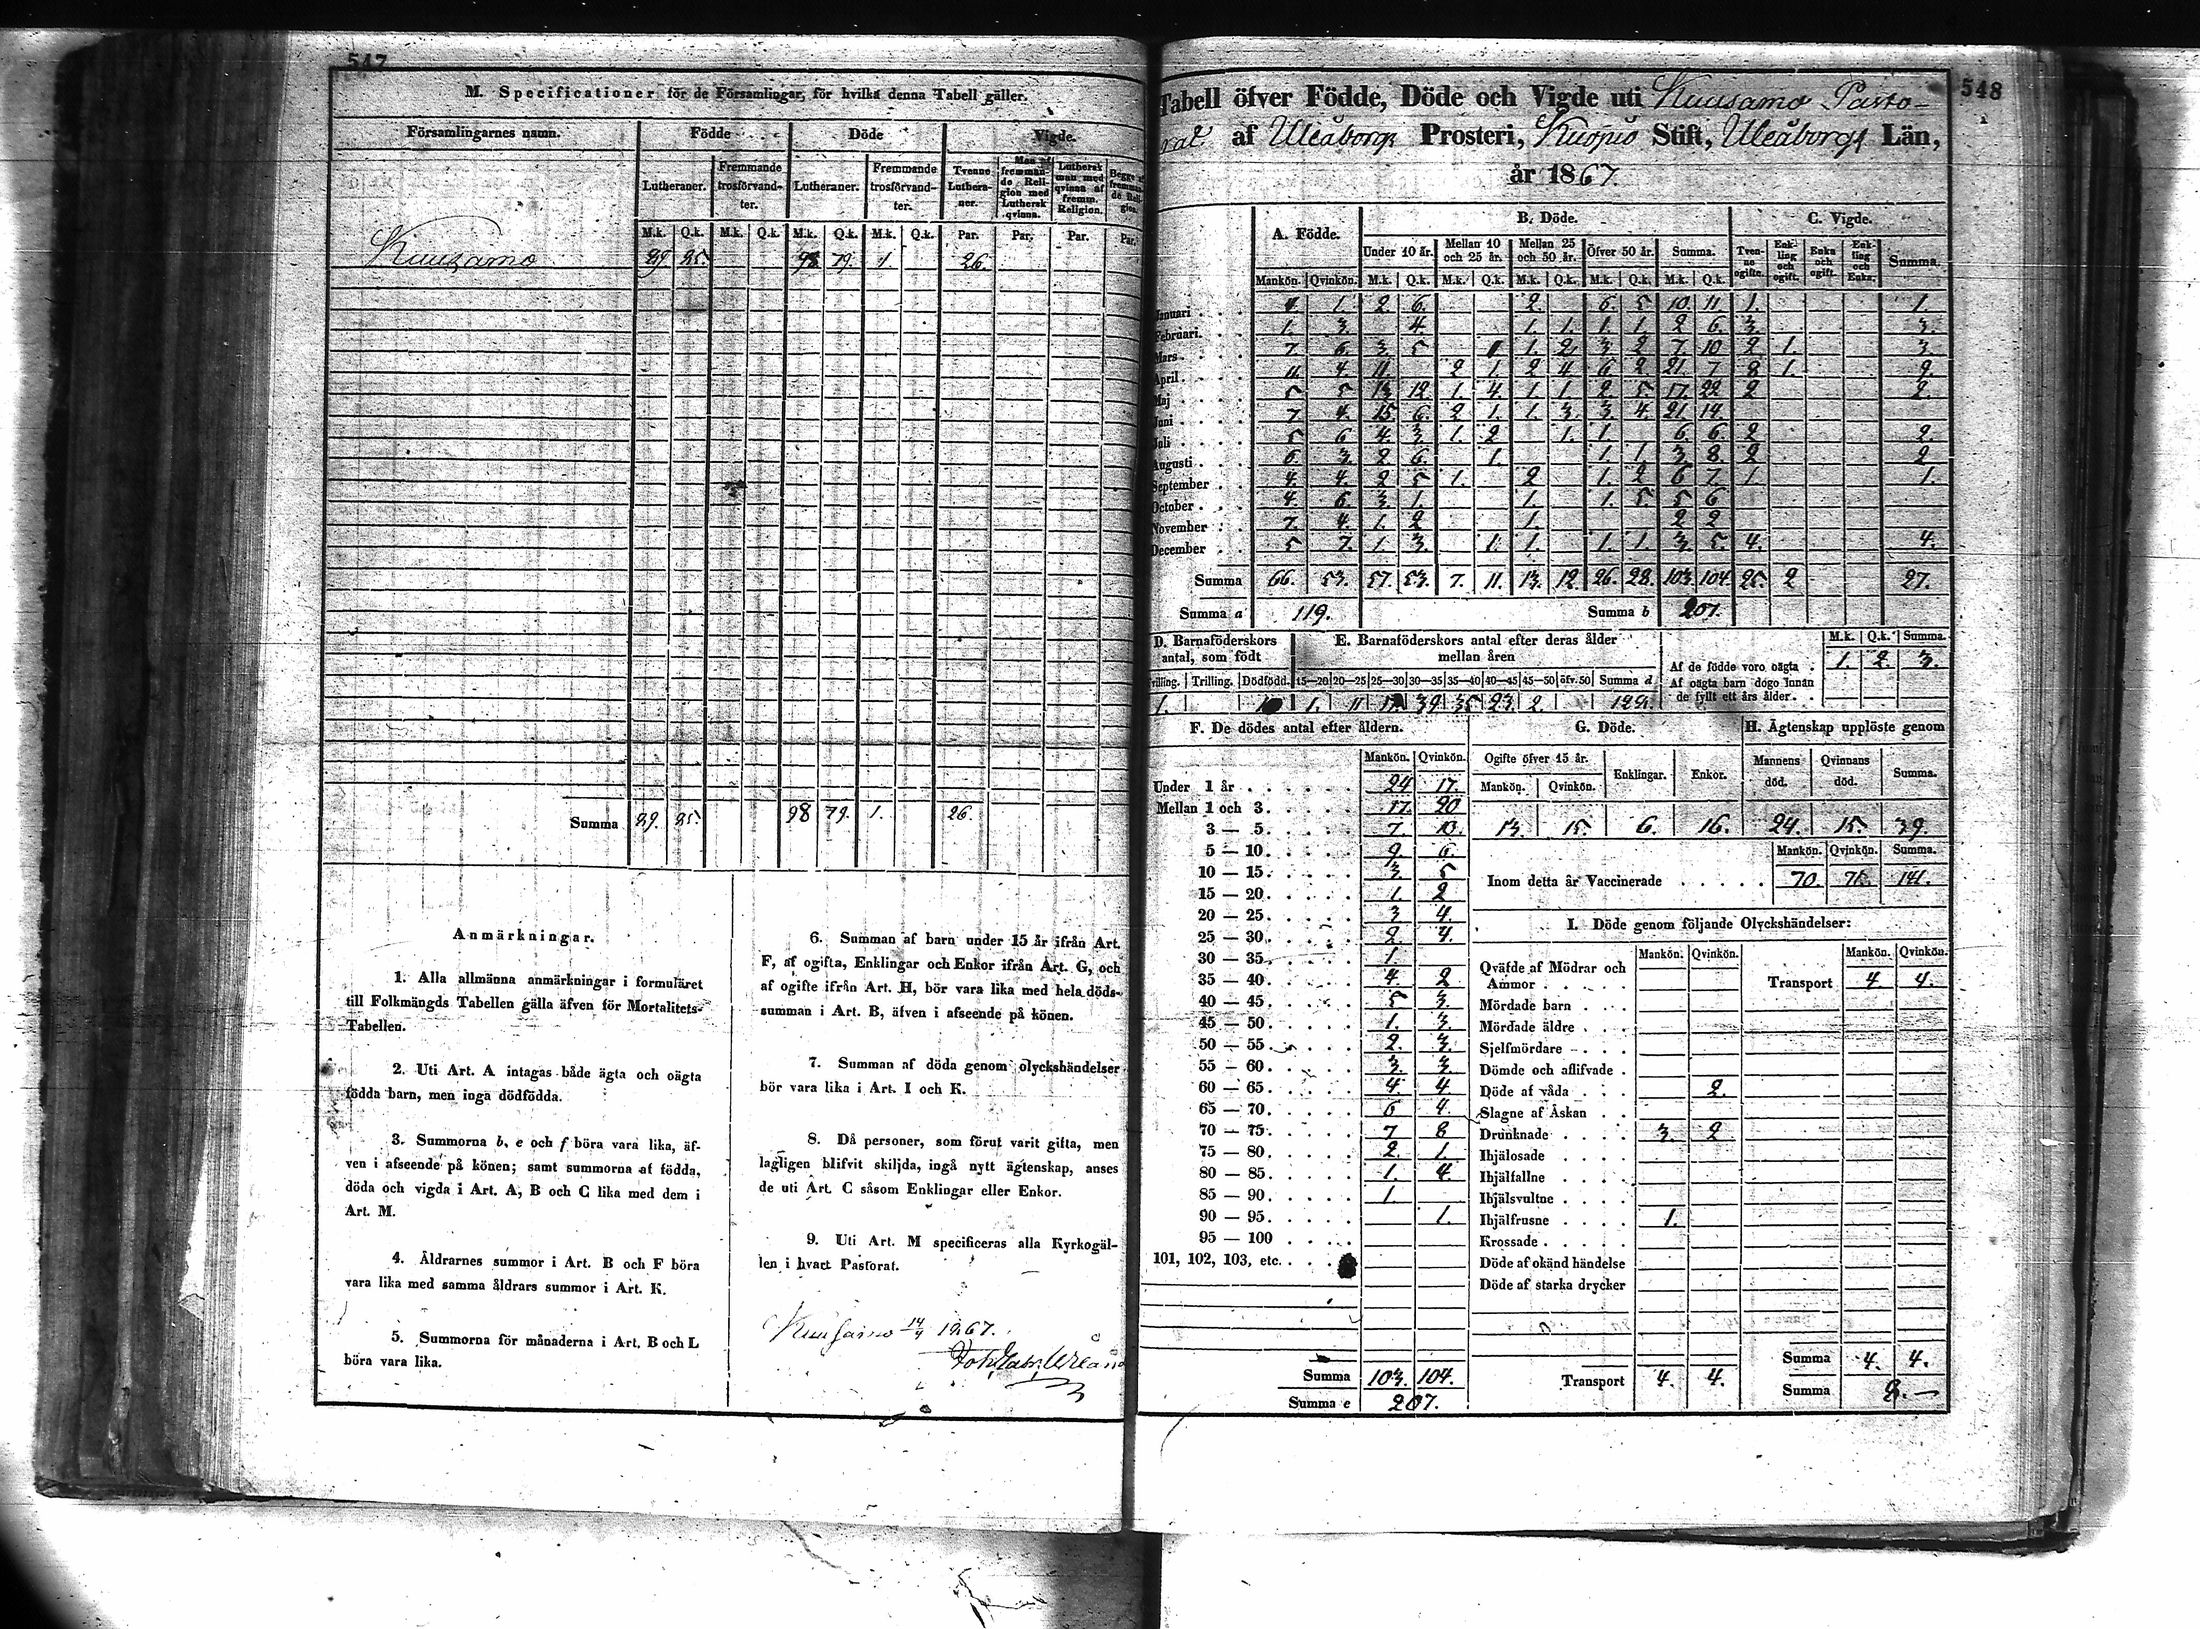 547
M. Specificationer för de Församlingar, för hvilka denna Tabell gäller.
Församlingarnes namn. Födde Döde Vigde.
Lutheraner. Fremmande trosförvandter. Lutheraner. Fremmande trosförvandter. Tvenne Lutheraner. Man af fremmande Religion med Luthersk qvinna. Luthersk man med qvinna af fremm. Religion. Begge af fremmande Religion.
M.k. Q.k. M.k. Q.k. M.k. Q.k. M.k. Q.k. Par. Par. Par. Par.
Kuusamo 89. 85. 98 79. 1. 26.
Summa 89. 85. 98 79. 1. 26.
Anmärkningar.
1. Alla allmänna anmärkningar i formuläret
till Folkmängds Tabellen gälla äfven för Mortalitets-
Tabellen.
2. Uti Art. A intagas både ägta och oägta
födda barn, men inga dödfödda.
3. Summorna b, e och f böra vara lika, äf-
ven i afseende på könen; samt summorna af födda,
döda och vigda i Art. A, B och C lika med dem i
Art. M.
4. Åldrarnes summor i Art. B och F böra
vara lika med samma åldrars summor i Art. K.
5. Summorna för månaderna i Art. B och L
böra vara lika.
6. Summan af barn under 15 år ifrån Art.
F, af ogifta, Enklingar och Enkor ifrån Art. G, och
af ogifte ifrån Art. H, bör vara lika med hela döds-
summan i Art. B, äfven i afseende på könen.
7. Summan af döda genom olyckshändelser
bör vara lika i Art. I och K.
8. Då personer, som förut varit gifta, men
lagligen blifvit skiljda, ingå nytt ägtenskap, anses
de uti Art. C såsom Enklingar eller Enkor.
9. Uti Art. M specificeras alla Kyrkogäl-
len i hvart Pastorat.
Kuusamo 1867.
548
Tabell öfver Födde, Döde och Vigde uti Kuusamo Pasto-
rat af Uleåborgs Prosteri, Kuopio Stift, Uleåborgs Län,
år 1867.
A. Födde. B. Döde. C. Vigde.
Under 10 år. Mellan 10 och 25 år. Mellan 25 och 50 år. Öfver 50 år. Summa. Tvenne ogifte. Enkling och ogift. Enka och ogift. Enkling och Enka. Summa.
Mankön. Qvinkön. M.k. Q.k. M.k. Q.k. M.k. Q.k. M.k. Q.k. M.k. Q.k.
Januari 4. 1. 2. 6. 2. 6. 5 10 11 1. 1.
Februari 1. 3. 4. 1. 1. 1. 1. 2 6. 3. 3.
Mars 7. 6. 3. 5 1 1. 2. 3 2 7 10 2 1. 3.
April 11. 4. 11. 2 1. 2 4 6 2 21. 7 8 1. 9.
Maj 5 5 13 12. 1. 4. 1. 1. 2. 5. 17. 22 2 2.
Juni 7 4. 15 6. 2 1. 1. 3. 3. 4. 21 14.
Juli 5 6 4. 3. 1. 2 1. 1. 6. 6. 2 2.
Augusti 6. 3. 2 6. 1. 1. 1 3 8. 2 2
September 4. 4. 2 5 1. 2 1. 2 6 7. 1. 1.
October 4. 6. 3. 1. 1. 1. 5. 5 6
November 7. 4. 1. 2 1. 2 2
December 5 7. 1. 3. 1. 1. 1. 1. 3. 5. 4. 4.
Summa 66. 53. 57. 53. 7. 11. 13. 12. 26. 28. 103. 104. 25. 2 27.
Summa a 119. Summa b 207.
D. Barnaföderskors antal, som födt
E. Barnaföderskors antal efter deras ålder mellan åren
M.k. Q.k. Summa.
Af de födde voro oägta 1. 2. 3.
Af oägta barn dogo innan
de fyllt ett års ålder.
Tvilling. Trilling. Dödfödd. 15—20 20—25 25—30 30—35 35—40 40—45 45—50 öfv. 50 Summa d
1. 1. 11 39 35 23. 2.
F. De dödes antal efter åldern.
Mankön. Qvinkön.
Under 1 år 24 17.
Mellan 1 och 3. 17. 20
3 — 5. 7. 10.
5 — 10. 9. 6.
10 — 15. 3. 5
15 — 20. 1. 2
20 — 25. 3 4.
25 — 30. 2. 4.
30 — 35. 1.
35 — 40. 4. 2
40 — 45. 5 3.
45 — 50. 1. 3.
50 — 55. 2. 3.
55 — 60. 3. 3.
60 — 65. 4. 4
65 — 70. 6 4.
70 — 75. 7 8
75 — 80. 2. 1.
80 — 85. 1. 4.
85 — 90. 1.
90 — 95. 1.
95 — 100
101, 102, 103, etc.
Summa 103. 104.
Summa e 207.
G. Döde.
Ogifte öfver 15 år. Enklingar. Enkor.
Mankön. Qvinkön.
13. 15. 6. 16.
H. Ägtenskap upplöste genom
Mannens död. Qvinnans död. Summa.
24. 15. 39.
Mankön. Qvinkön. Summa.
Inom detta år Vaccinerade 70. 71. 141.
I. Döde genom följande Olyckshändelser:
Mankön. Qvinkön. Mankön. Qvinkön.
Qväfde af Mödrar och
Ammor
Transport 4 4.
Mördade barn
Mördade äldre
Sjelfmördare
Dömde och aflifvade
Döde af våda 2.
Slagne af Åskan
Drunknade 3. 2
Ihjälosade
Ihjälfallne
Ihjälsvultne
Ihjälfrusne 1.
Krossade
Döde af okänd händelse
Döde af starka drycker
Summa 4. 4.
Transport 4. 4.
Summa 8.—